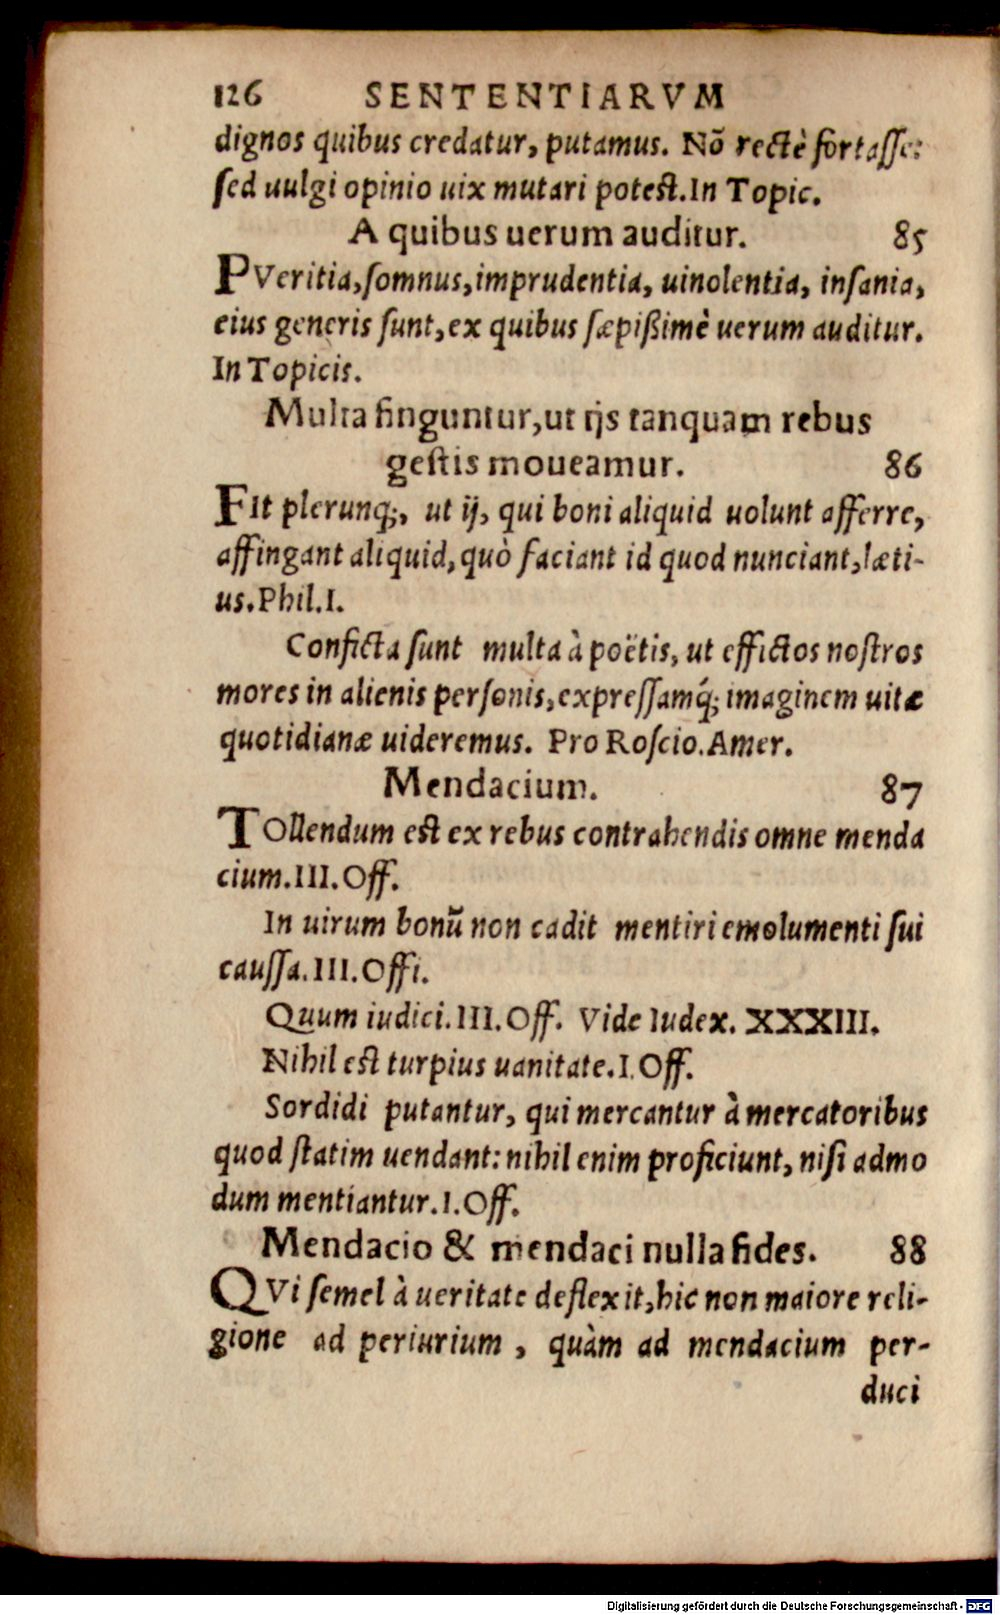 126 SENTENTIARVM
dignos quibus credatur, putamus. Nõ rectè fortasse:
sed uulgi opinio uix mutari potest. In Topic.
A quibus uerum auditur. 85
PVeritia, somnus, imprudentia, uinolentia, insania,
eius generis sunt, ex quibus sæpißimè uerum auditur.
In Topicis.
Multa finguntur, ut ijs tanquam rebus
gestis moueamur. 86
FIt plerunq;, ut ij, qui boni aliquid uolunt afferre,
affingant aliquid, quò faciant id quod nunciant, læti-
us. Phil. I.
Conficta sunt multa à poëtis, ut effictos nostros
mores in alienis personis, expressamq́; imaginem uitæ
quotidianæ uideremus. Pro Roscio. Amer.
Mendacium. 87
TOllendum est ex rebus contrahendis omne menda
cium. III. Off.
In uirum bonũ non cadit mentiri emolumenti sui
caussa. III. Offi.
Quum iudici. III. Off. Vide Iudex. XXXIII.
Nihil est turpius uanitate. I. Off.
Sordidi putantur, qui mercantur à mercatoribus
quod statim uendant: nihil enim proficiunt, nisi admo
dum mentiantur. I. Off.
Mendacio & mendaci nulla fides. 88
QVi semel à ueritate deflexit, hic non maiore reli-
gione ad periurium, quàm ad mendacium per-
duci
Digitalisierung gefördert durch die Deutsche Forschungsgemeinschaft - DFG